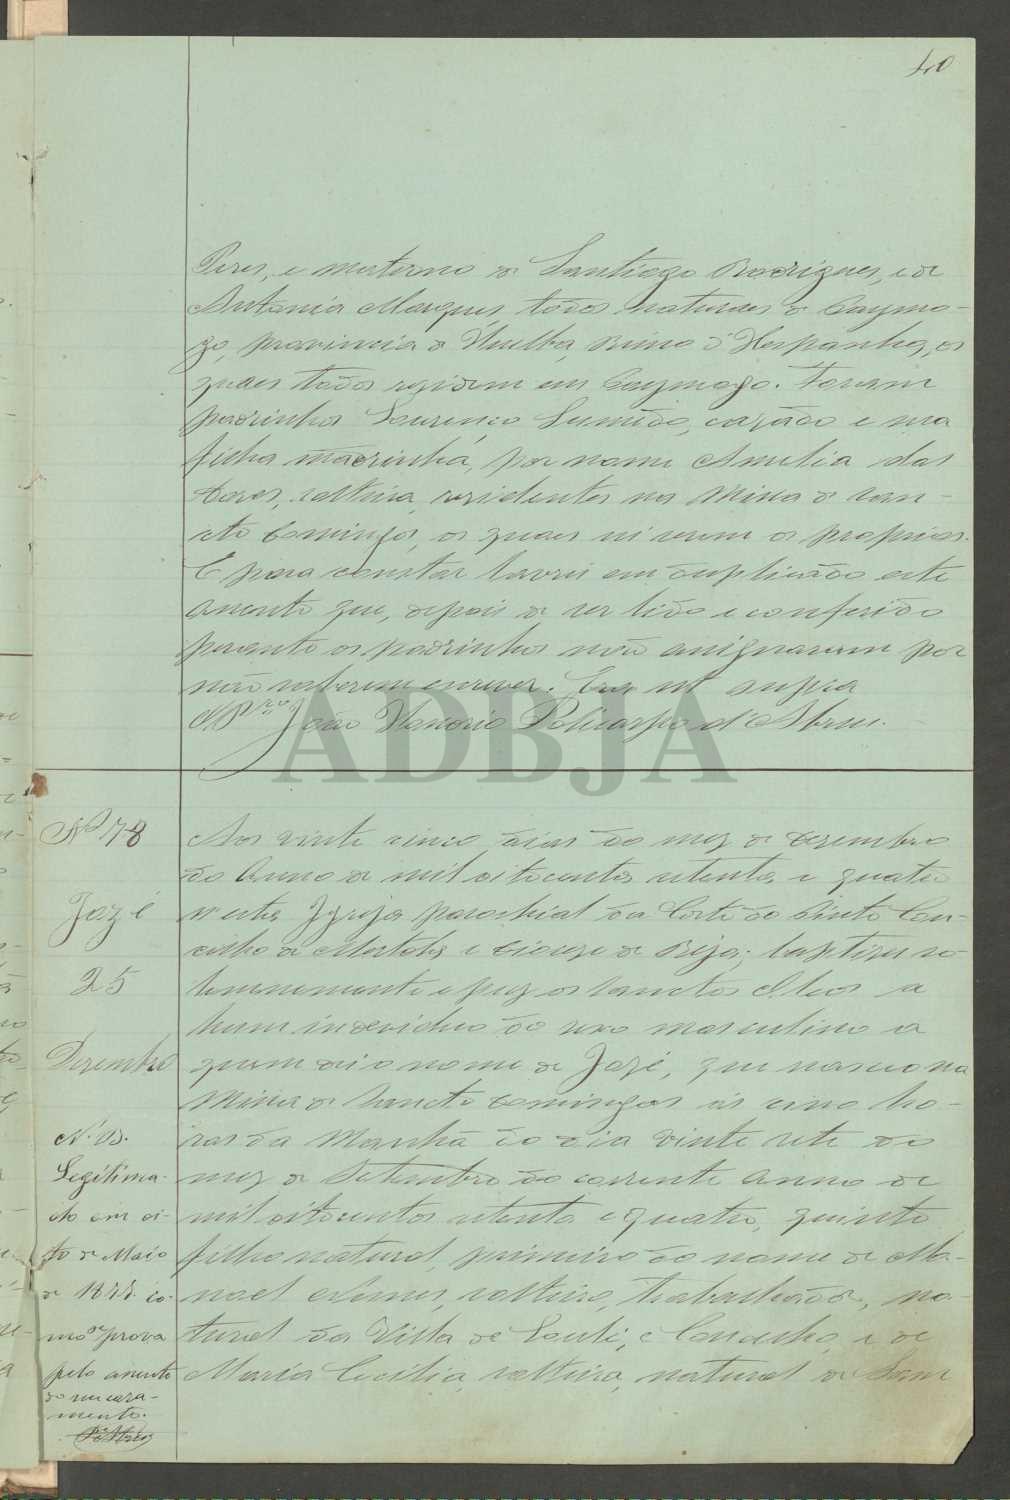 40
Peres, e materno de Santiago Rodrigues, e de
Antonia Marques todos naturaes de Caymo-
go, provincia d'Huelba, Reino d'Hespanha, os
quaes todos rezidem em Caymogo. Foram
padrinhos Lourenço Sumido, cazado e sua
filha madrinha, por nome Amelia das
Dores, solteira, rezidentes na Mina de San-
cto Domingos, os quaes sei serem os proprios.
E para constar lavrei em duplicado este
assento que, depois de ser lido e conferido
perante os padrinhos não assignaram por
não saberem escrever. Era ut supra
O Pr.º João Honorio Policarpo d'Abreu.
ADBJA
Nº 78
José
25
Dezembro
N. B.
Legitima-
do em oi-
to de Maio
de 1877. co-
mo se prova
pelo assento
do seu caza-
mento.
Aos vinte cinco dias do mez de Dezembro
do Anno de mil oitocentos setenta e quatro
n'esta Igreja parochial da Corte do Pinto Con-
celho de Mertola e Diocese de Beja; baptizei so-
lemnemente e puz os Sanctos Oleos a
hum individuo do sexo masculino a
quem dei o nome de José, que nasceo na
Mina de Sancto Domingos ás cinco ho-
ras da Manhã do dia vinte sete do
mez de Setembro do corrente Anno de
mil oitocentos setenta e quatro, quinto
filho natural, primeiro do nome de Ma-
noel Nunes, solteiro, trabalhador, na-
tural da Villa de Loulé, e Concelho, e de
Maria Cecilia, solteira, natural de Sam